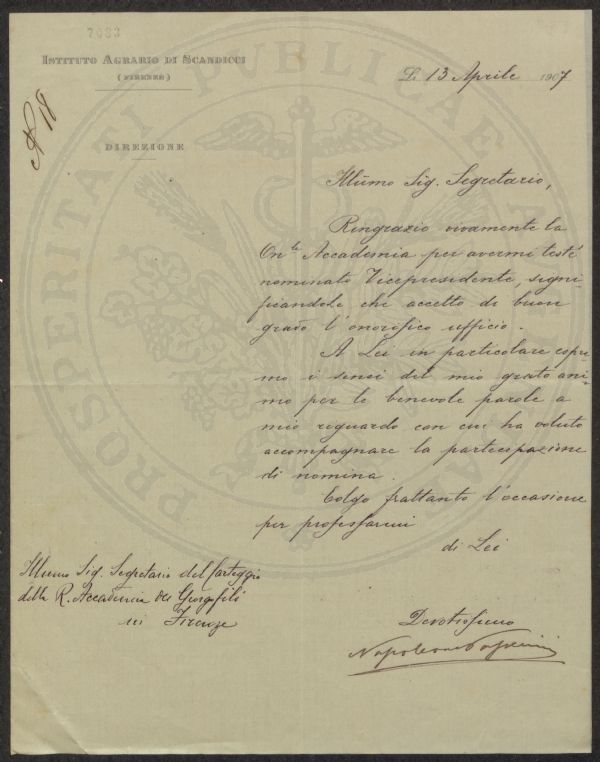 7083
ISTITUTO AGRARIO DI SCANDICCI
(FIRENZE)
Li 13 Aprile 1907
N 18
DIREZIONE
PROSPERITATI PVBLICAE A
Illumo Sig. Segretario,
Ringrazio vivamente la
On.le Accademia per avermi testè
nominato Vicepresidente, signi-
ficandole che accetto di buon
grado l'onorifico ufficio.
A Lei in particolare espri-
mo i sensi del mio grato ani-
mo per le benevole parole a
mio riguardo con cui ha voluto
accompagnare la partecipazione
di nomina.
Colgo frattanto l'occasione
per professarmi
di Lei
Illumo Sig. Segretario del Carteggio
della R. Accademia dei Georgofili
in Firenze
Devotissimo
Napoleone Passerini